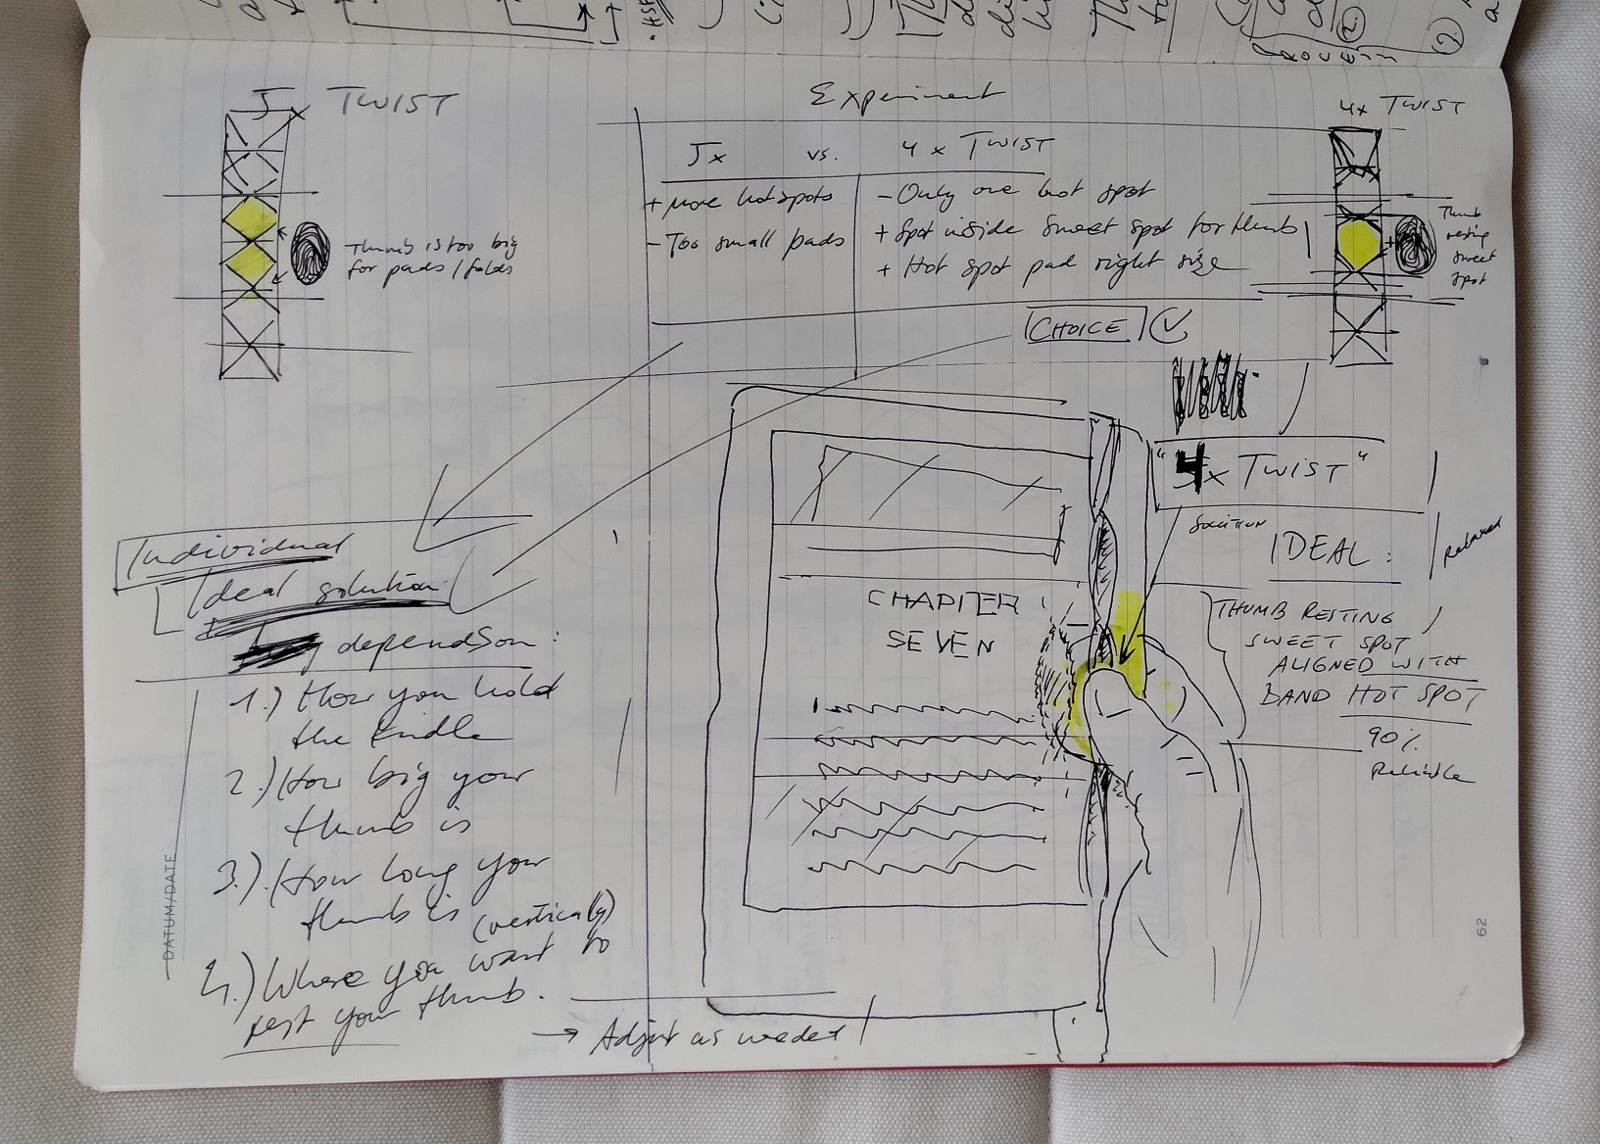 5x TWIST
Thumb is too big
for pads / folds
Experiment
5x vs. 4x TWIST
+ More hotspots
- Too small pads
- Only one hot spot
+ Spot inside sweet spot for thumb
+ Hot spot pad right size
CHOICE
4x TWIST
Thumb
resting
sweet
spot
"4x TWIST"
SOLUTION
IDEAL:
Relaxed
THUMB RESTING
SWEET SPOT
ALIGNED WITH
BAND HOT SPOT
90%
Reliable
CHAPTER
SEVEN
Individual
Ideal solution
depends on:
1.) How you hold
the kindle
2.) How big your
thumb is
3.) How long your
thumb is
4.) Where you want to (vertically)
rest your thumb.
→ Adjust as needed
DATUM/DATE
62